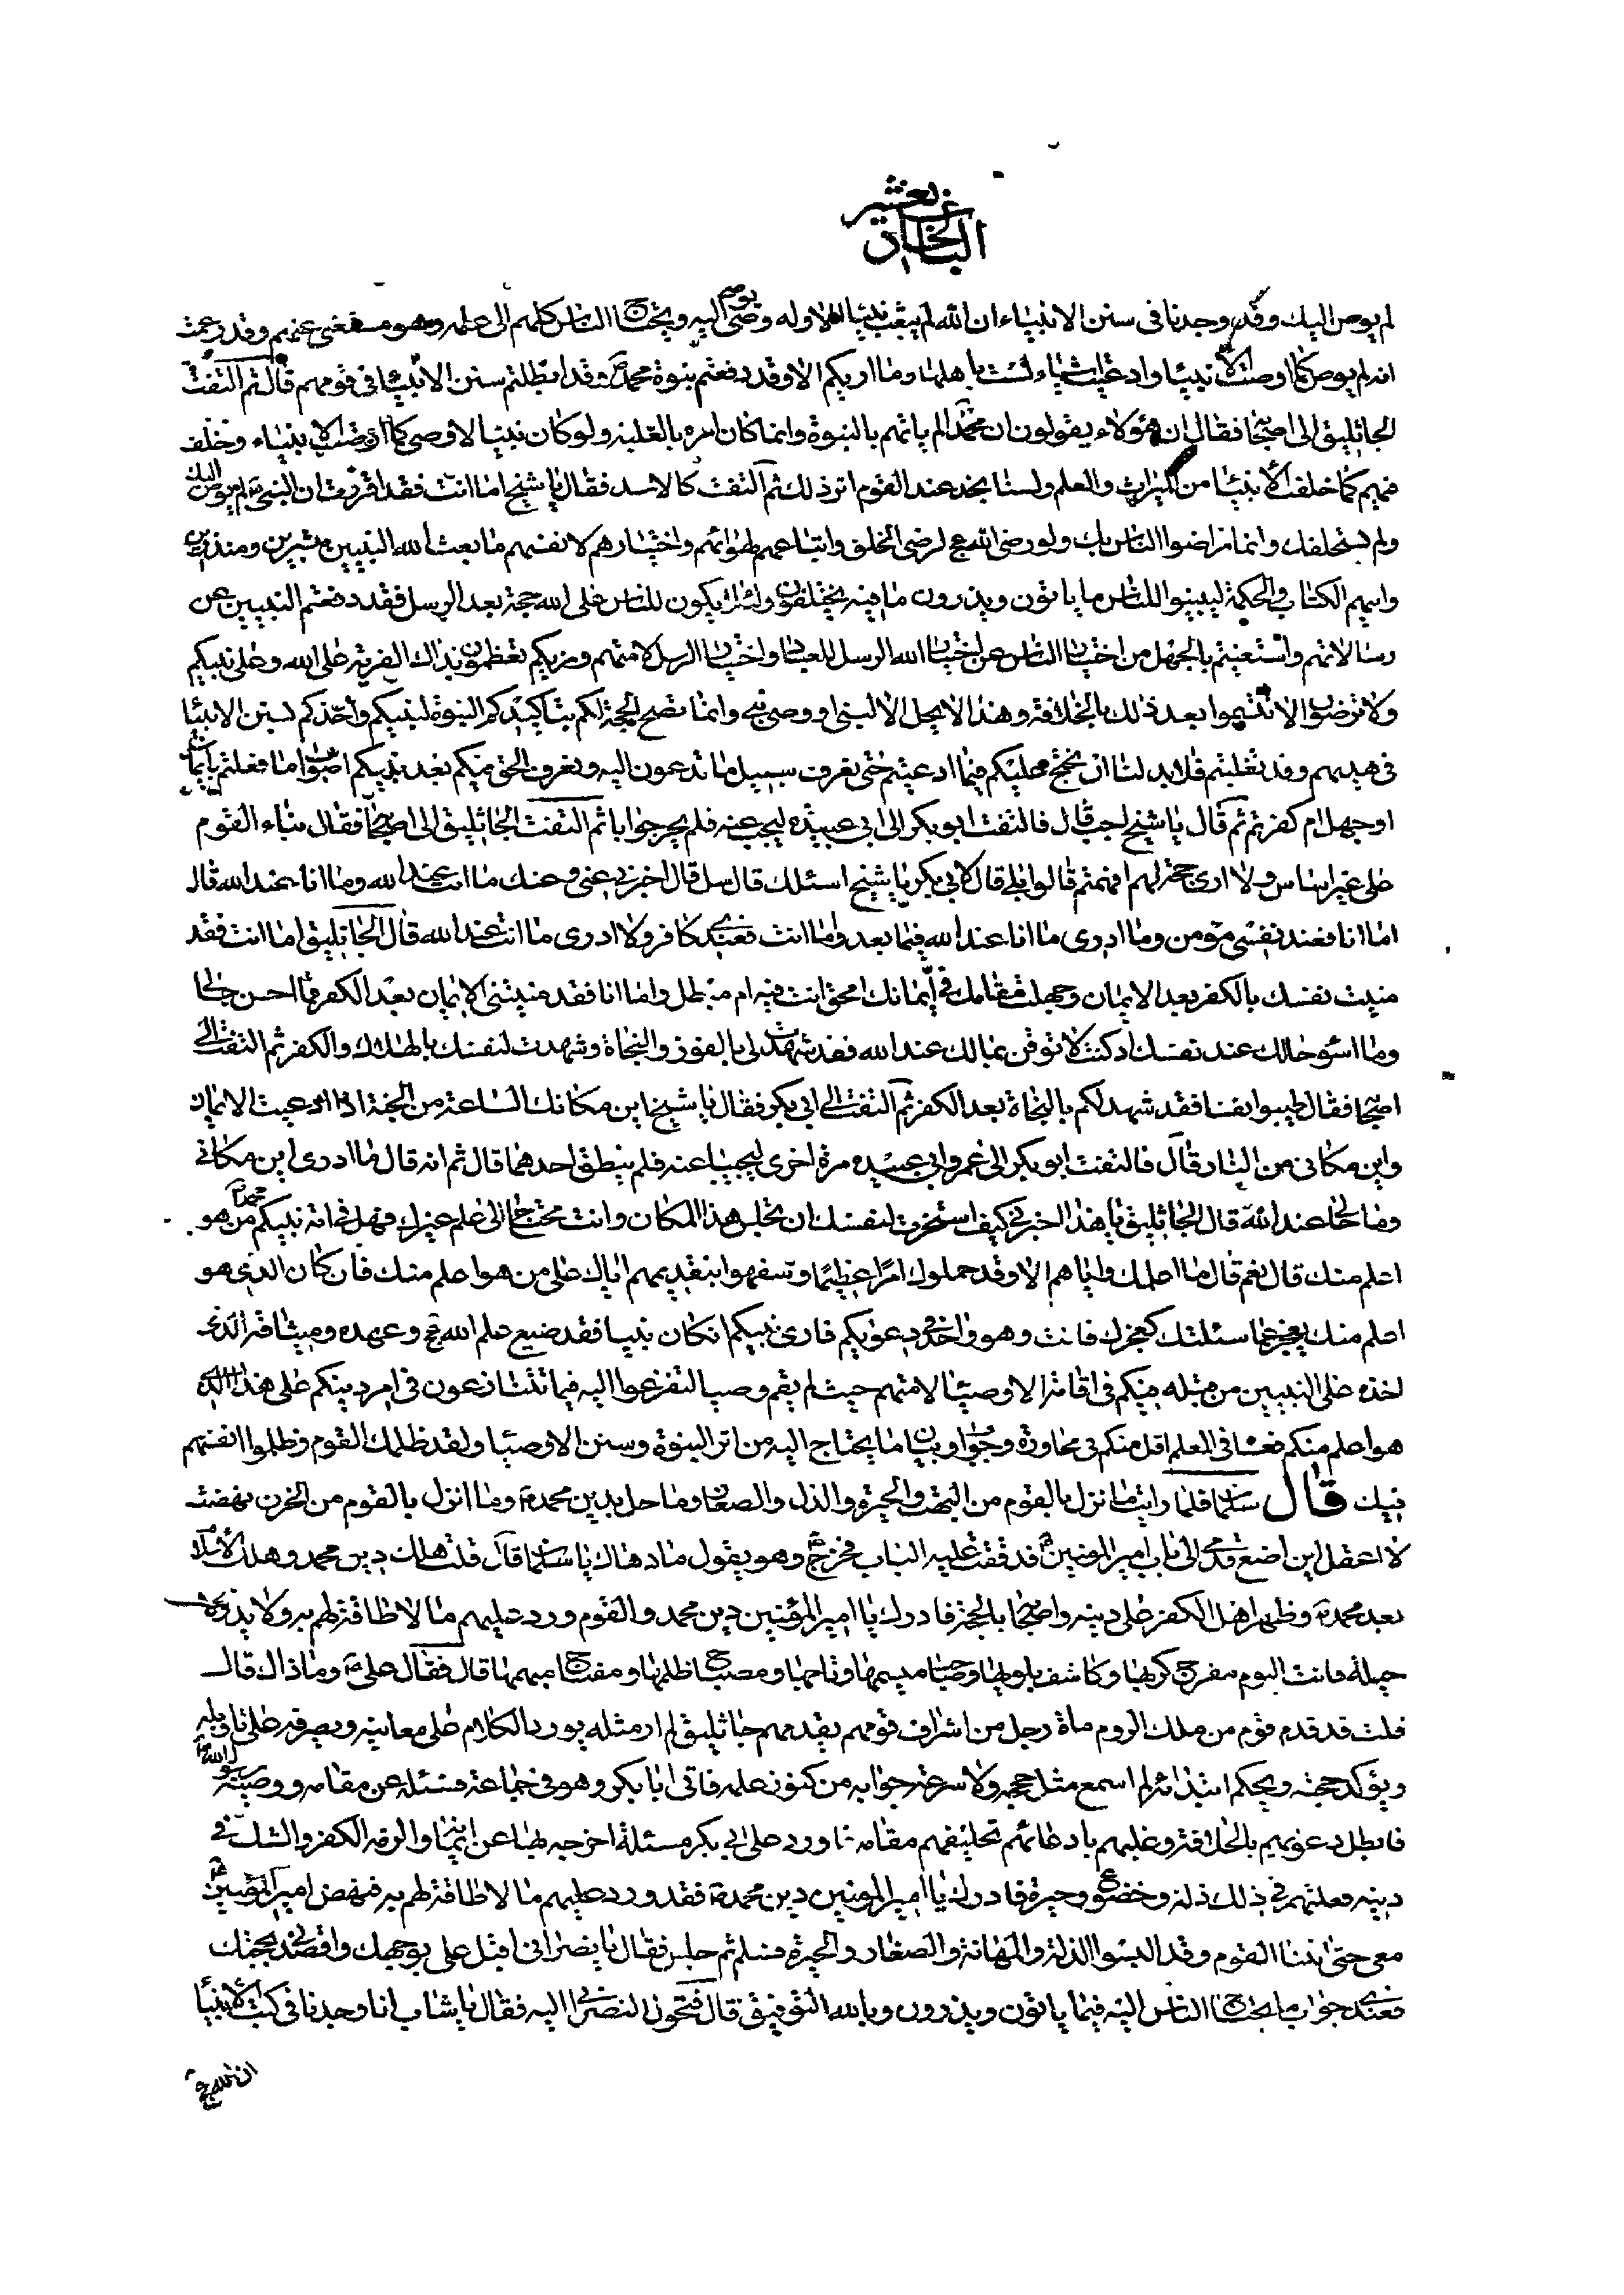 لم يوص اليك وقد وجدنا في سنن الانبياء ان الله لم يبعث نبيا الا وله وصي يوصى اليه ويحتاج الناس كلهم الى علمه وهو مستغنى عنهم وقد زعمت
انه لم يوص كما اوصت الانبيا وادعيت اشياء لست باهلها وما اريكم الا وقد دفعتم نبوة محمد وقد ابطلتم سنن الانبيا في قومهم قال ثم التفت
الجاثليق الى اصحابه فقال ان هؤلاء يقولون ان محمدا لم ياتهم بالنبوة وانما كان امره بالغلبة ولو كان نبيا لاوصى كما اوصت الانبياء وخلف
فيهم كما خلفت الأنبيا من الميراث والعلم ولسنا نجد عند القوم اثر ذلك ثم التفت كالاسد فقال يا شيخ اما انت فقد اقررت ان النبي لم يوص اليك
ولم يستخلفك وانما تراضوا الناس بك ولو رضى الله عج لرضى الخلق واتباعهم لهوائهم واختيارهم لانفسهم ما بعث الله النبيين مبشرين ومنذرين
واتيهم الكتاب والحكمة ليبينوا للناس ما ياتون ويذرون ما فيه يختلفون ولئلا يكون للناس على الله حجة بعد الرسل فقد دفعتم النبيين عن
رسالاتهم واستغنيتم بالجهل من اختيار الناس عن اختيار الله الرسل للعباد واختيار الرسل لامتهم ونريكم تعظمون بذلك الفرية على الله وعلى نبيكم
ولا ترضون الا ان تتسموا بعد ذلك بالخلافة وهذا لا يحل الا لنبي او وصى نبي وانما تصح الحجة لكم بتاكيدكم النبوة لنبيكم واخذكم لسنن الانبيا
في هديهم وقد تغلبتم فلا بد لنا ان نحتج عليكم فيما ادعيتم حتى نعرف سبيل ما تدعون اليه ونعرف الحق فيكم بعد نبيكم اصواب ما فعلتم بايمان
او جهل ام كفرتم ثم قال يا شيخ اجب قال فالتفت ابو بكر الى ابي عبيده ليجب عنه فلم يحر جوابا ثم التفت الجاثليق الى اصحابه فقال بناء القوم
على غير اساس ولا ارى حجة لهم افهمتم قالوا بلى قال لابي بكر يا شيخ اسئلك قال سل قال اخبرني عني وعنك ما انت عند الله وما انا عند الله قال
اما انا فعند نفسي مؤمن وما ادرى ما انا عند الله فيما بعد واما انت فعندى كافر ولا ادرى ما انت عند الله قال الجاثليق اما انت فقد
منيت نفسك بالكفر بعد الايمان وجهلت مقامك في ايمانك امحق انت فيه ام مبطل واما انا فقد منيتني الايمان بعد الكفر فما احسن حالي
وما اسؤ حالك عند نفسك اذ كنت لا توقن بما لك عند الله فقد شهدت لي بالفوز والنجاة وشهدت لنفسك بالهلاك والكفر ثم التفت الى
اصحابه فقال طيبوا نفسا فقد شهد لكم بالنجاة بعد الكفر ثم التفت الى ابي بكر فقال يا شيخ اين مكانك الساعة من الجنة اذا ادعيت الايمان
واين مكاني من النار قال فالتفت ابو بكر الى عمر وابي عبيده مرة اخرى ليجيبا عنه فلم ينطق احدهما قال ثم انه قال ما ادرى اين مكاني
وما حالي عند الله قال الجاثليق يا هذا اخبرني كيف استجزت لنفسك ان تجلس هذا المكان وانت محتاج الى علم غيرك فهل في امة نبيكم محمد من هو
اعلم منك قال نعم قال ما اعلمك واياهم الا وقد حملوك امرا عظيما وتسفهوا بتقديمهم اياك على من هو اعلم منك فان كان الذى هو
اعلم منك يعجز عما سئلتك كعجزك فانت وهو واحد في دعويكم فارى نبيكم ان كان نبيا فقد ضيع علم الله عج وعهده وميثاقه الذى
اخذه على النبيين من قبله فيكم في اقامة الاوصيا لامتهم حيث لم يقم وصيا لتفزعوا اليه فيما تتنازعون في امر دينكم
هو اعلم منكم فعسا في العلم اقل منكم في محاورة وجواب وبيان ما يحتاج اليه من اثر النبوة وسنن الاوصيا ولقد ظلمك القوم وظلموا انفسهم
فيك قال سلمان فلما رايت ما نزل بالقوم من البهت والحيرة والذل والصغار وما حل بدين محمد وما انزل بالقوم من الحزن نهضت
لا اعقل اين اضع قدمي الى باب امير المؤمنين فدققت عليه الباب فخرج وهو يقول ما دهاك يا سلمان قال قلت هلك دين محمد وهلك الاسلام
بعد محمد وظهر اهل الكفر على دينه واصحابه بالحجة فادرك يا امير المؤمنين دين محمد والقوم ورد عليهم ما لا طاقة لهم به ولا بد ولا
حيلة وانت اليوم مفرج كربها وكاشف بلوها وصاحب ميسمها وتاجها ومصباح ظلمها ومفتاح مبهمها قال فقال علي وما ذاك قال
قلت قد قدم قوم من ملك الروم ماة رجل من اشراف قومهم يقدمهم جاثليق لم ار مثله يورد الكلام على معانيه ويصرفه على تاويله
ويؤكد حجته ويحكم ابتدائه لم اسمع مثل حجته ولا سرعة جوابه من كنوز علمه فاتى ابا بكر وهو في جماعة فسئله عن مقامه ووصية رسول الله
فابطل دعويهم بالخلافة وغلبهم بادعائهم تخليفهم مقامه فاورد على ابي بكر مسئلة اخرجه بها عن ايمانه والزمه الكفر والشك في
دينه فعلتهم في ذلك ذلة وخضوع وحيرة فادرك يا امير المؤمنين دين محمد فقد ورد عليهم ما لا طاقة لهم به فنهض امير المؤمنين
معي حتى اتينا القوم وقد البسوا الذلة والمهانة والصغار والحيرة فسلم ثم جلس فقال يا نصراني اقبل علي بوجهك واقصدني بحجتك
فعندى جواب ما يحتاج الناس اليه فيما ياتون ويذرون وبالله التوفيق قال فتحول النصراني اليه فقال يا شاب انا وجدنا في كتب الانبيا
ان الله عج